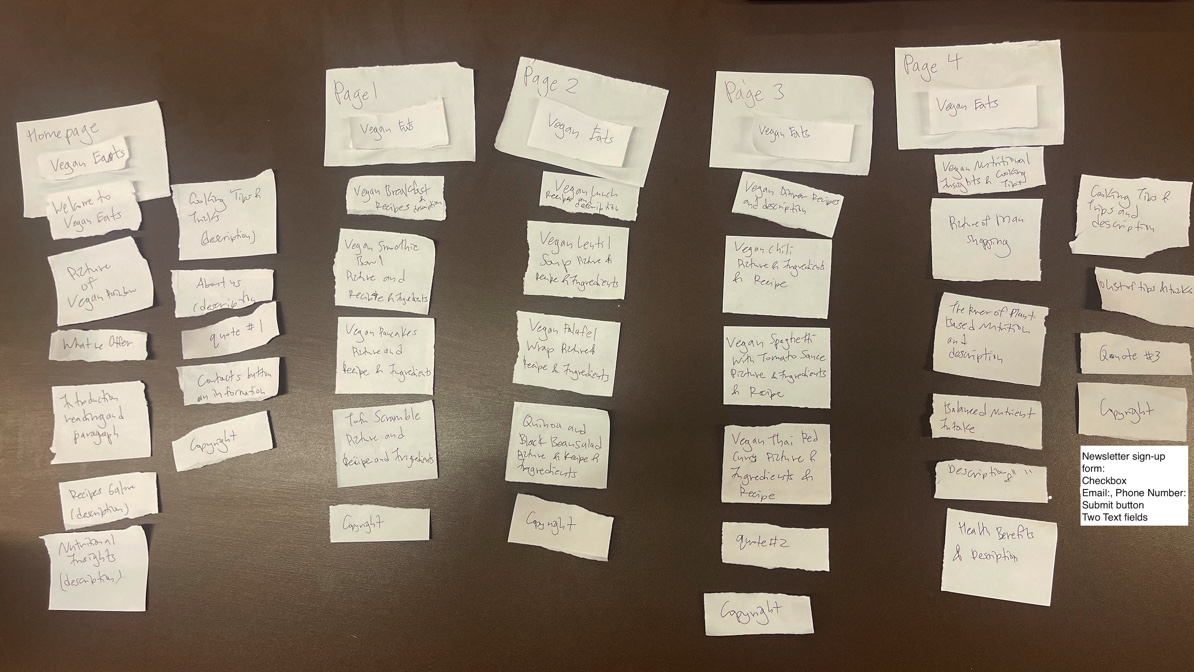 Homepage
Vegan Eats
Welcome to
Vegan Eats
Picture
of
Vegan
What we Offer
Introduction
heading and
paragraph
Recipes Galore
(description)
Nutritional
Insights
(description)
Cooking Tips &
Tricks
(description)
About us
(description)
quote #1
Contacts button
an information
Copyright
Page 1
Vegan Eats
Vegan Breakfast
Recipes description
Vegan Smoothie
Bowl
Picture and
Recipe & Ingredients
Vegan Pancakes
Picture and
Recipe & Ingredients
Tofu Scramble
Picture and
Recipe and Ingredients
Copyright
Page 2
Vegan Eats
Vegan Lunch
Recipes and description
Vegan Lentil
Soup Picture &
Recipe & Ingredients
Vegan Falafel
Wrap Picture &
Recipe & Ingredients
Quinoa and
Black Bean salad
Picture & Recipe &
Ingredients
Copyright
Page 3
Vegan Eats
Vegan Dinner Recipes
and description
Vegan Chili
Picture & Ingredients
& Recipe
Vegan Spaghetti
with Tomato Sauce
Picture & Ingredients
& Recipe
Vegan Thai Red
Curry Picture &
Ingredients &
Recipe
quote #2
Copyright
Page 4
Vegan Eats
Vegan Nutritional
Insights & Cooking
Tips
Picture of Man
shopping
The Power of Plant
Based Nutrition
and
description
Balanced Nutrient
Intake
Description " "
Health Benefits
& Description
Cooking Tips &
Trips and
description
List of tips & tricks
Qunote #3
Copyright
Newsletter sign-up
form:
Checkbox
Email:, Phone Number:
Submit button
Two Text fields